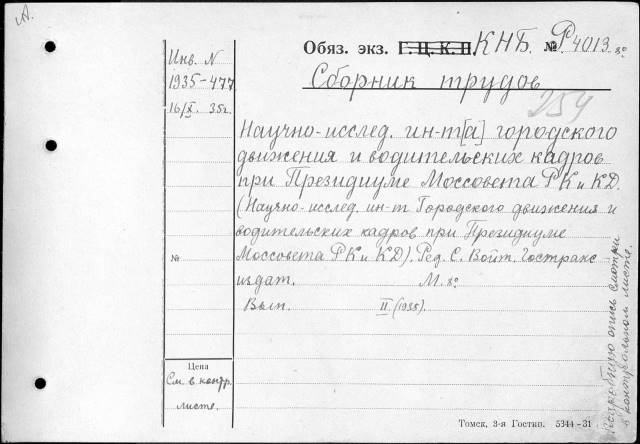 А.
Инв. N
1935-477
16/X. 35г.
Обяз. экз. Г. Ц. К. П. КНБ. № Р4013.8°
Сборник трудов
259
Научно-исслед. ин-т[а] городского
движения и водительских кадров
при Президиуме Моссовета РК и КД.
(Научно-исслед. ин-т Городского движения и
водительских кадров при Президиуме
№
Моссовета РК и КД). Ред. С. Войт. Гостранс
издат. М. 8°
Вып. II (1935).
Цена
См. в контр.
листе.
Подробную опись смотри
в контрольном листе.
Томск, 3-я Гостип. 5344-31